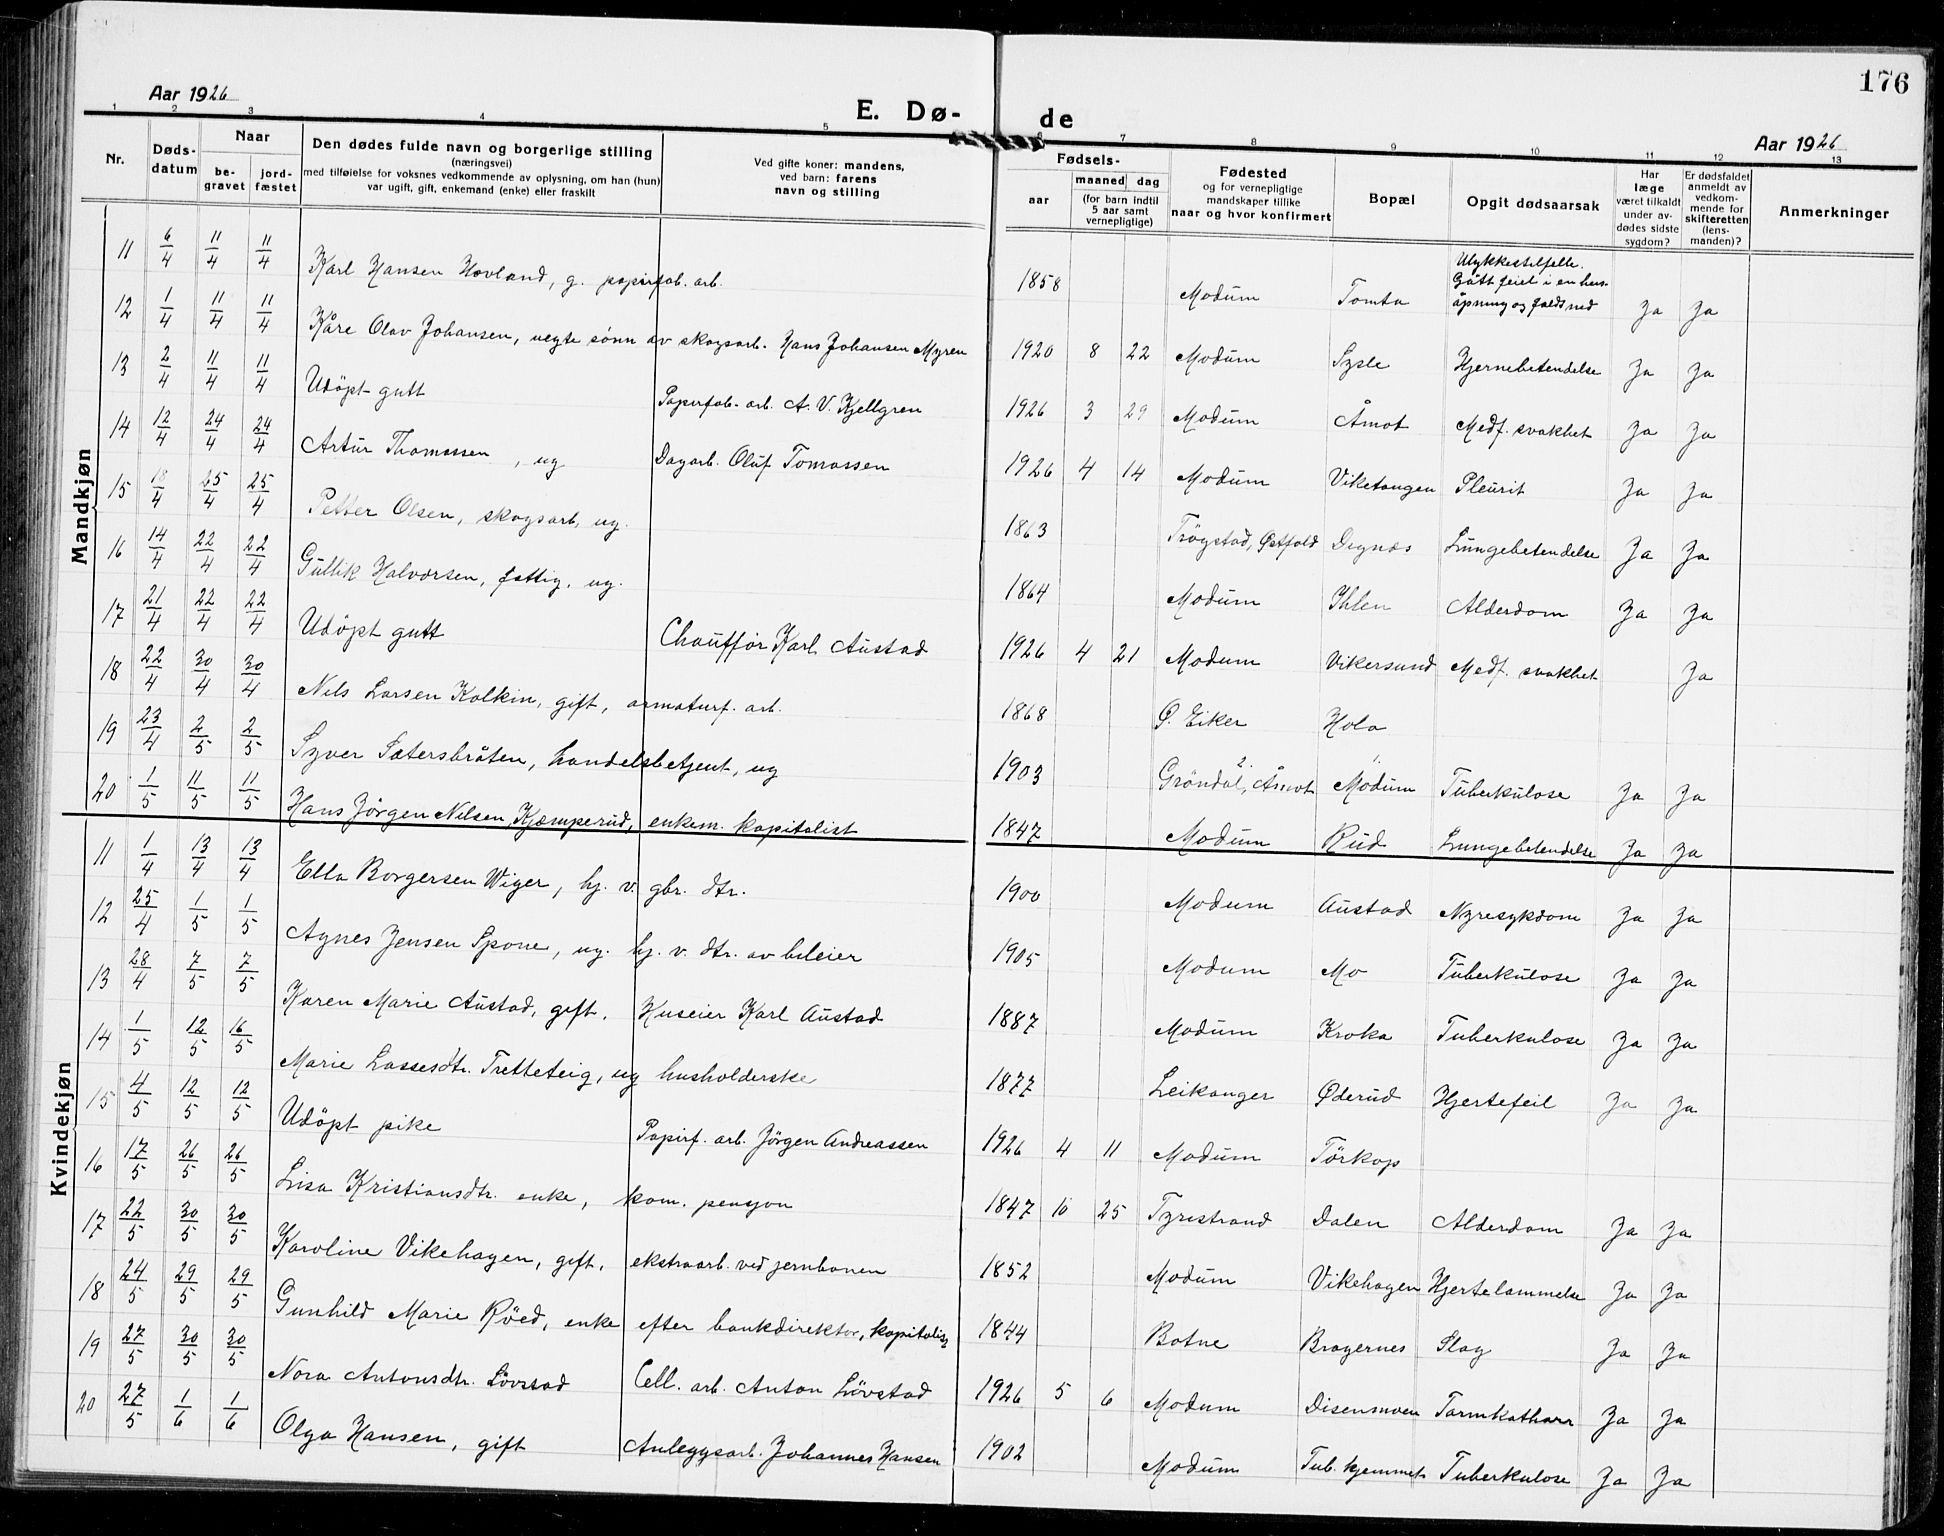 176
Aar 1926
E. Dø-
de
Aar 1926
1 2 3 4 5 6 7 8 9 10 11 12 13
Nr.
Døds-
datum
Naar
be-
gravet
jord-
fæstet
Den dødes fulde navn og borgerlige stilling
(næringsvei)
med tilføielse for voksnes vedkommende av oplysning, om han (hun)
var ugift, gift, enkemand (enke) eller fraskilt
Ved gifte koner: mandens,
ved barn: farens
navn og stilling
Fødsels-
aar
maaned dag
(for barn indtil
5 aar samt
vernepligtige)
Fødested
og for vernepligtige
mandskaper tillike
naar og hvor konfirmert
Bopæl
Opgit dødsaarsak
Har
læge
været tilkaldt
under av-
dødes sidste
sygdom?
Er dødsfaldet
anmeldt av
vedkom-
mende for
skifteretten
(lens-
manden)?
Anmerkninger
Mandkjøn
11 6/4 11/4 11/4 Karl Hansen Hovland, g. papirfab. arb. 1858 Modum Tomta Ulykkestilfelle. Gått feil i en heis åpning og faldt ned Ja Ja
12 1/4 11/4 11/4 Kåre Olav Johansen, uegte sønn av skogsarb. Hans Johansen Myren 1920 8 22 Modum Sysle Hjernebetendelse Ja Ja
13 2/4 11/4 11/4 Udöpt gutt Papirfab. arb. A. V. Kjellgren 1926 3 29 Modum Åmot Medf. svakhet Ja Ja
14 12/4 24/4 24/4 Artur Thomassen, ug Dagarb. Oluf Tomassen 1926 4 14 Modum Viketangen Pleurit Ja Ja
15 18/4 25/4 25/4 Petter Olsen, skogsarb, ug. 1863 Trögstad, Østfold Degnæs Lungebetendelse Ja Ja
16 14/4 22/4 22/4 Gullik Halvorsen, fattig, ug. 1864 Modum Ihlen Alderdom Ja Ja
17 21/4 22/4 22/4 Udöpt gutt Chauffør Karl Austad 1926 4 21 Modum Vikersund Medf. svakhet Ja
18 22/4 30/4 30/4 Nils Larsen Kolkin, gift, armaturf. arb. 1868 Ø. Eiker Hola
19 23/4 2/5 2/5 Syver Sætersbråten, handelsbetjent, ug 1903 Gröndal, Åmot 2. Modum Tuberkulose Ja Ja
20 1/5 11/5 11/5 Hans Jørgen Nilsen Kjæmperud, enkem. kapitalist 1847 Modum Rud Lungebetendelse Ja Ja
Kvindekjøn
11 1/4 13/4 13/4 Ella Borgersen Wiger, hj. v. gbr. dtr. 1900 Modum Austad Nyresykdom Ja Ja
12 25/4 1/5 1/5 Agnes Jensen Spone, ug. hj. v. dtr. av bileier 1905 Modum Mo Tuberkulose Ja Ja
13 28/4 7/5 7/5 Karen Marie Austad, gift. Huseier Karl Austad 1887 Modum Kroka Tuberkulose Ja Ja
14 1/5 12/5 16/5 Marie Lassesdtr. Tretteteig, ug husholderske 1877 Leikanger Øderud Hjertefeil Ja Ja
15 4/5 12/5 12/5 Udöpt pike Papirf. arb. Jörgen Andreassen 1926 4 11 Modum Törkop
16 17/5 26/5 26/5 Lisa Kristiansdtr. enke, kom. pensjon 1847 10 25 Tyristrand Dalen Alderdom Ja Ja
17 22/5 30/5 30/5 Karoline Vikehagen, gift, ekstraarb. ved jernbanen 1852 Modum Vikehagen Hjertelammelse Ja Ja
18 24/5 29/5 29/5 Gunhild Marie Röed, enke efter bankdirektør, kapitalist 1844 Botne Bragernes Slag Ja Ja
19 27/5 30/5 30/5 Nora Antonsdtr. Lövstad Cell. arb. Anton Lövstad 1926 5 6 Modum Disenmoen Tarmkatharr Ja Ja
20 27/5 1/6 1/6 Olga Hansen, gift Anleggsarb. Johannes Hansen 1902 Modum Tub. hjemmet Tuberkulose Ja Ja